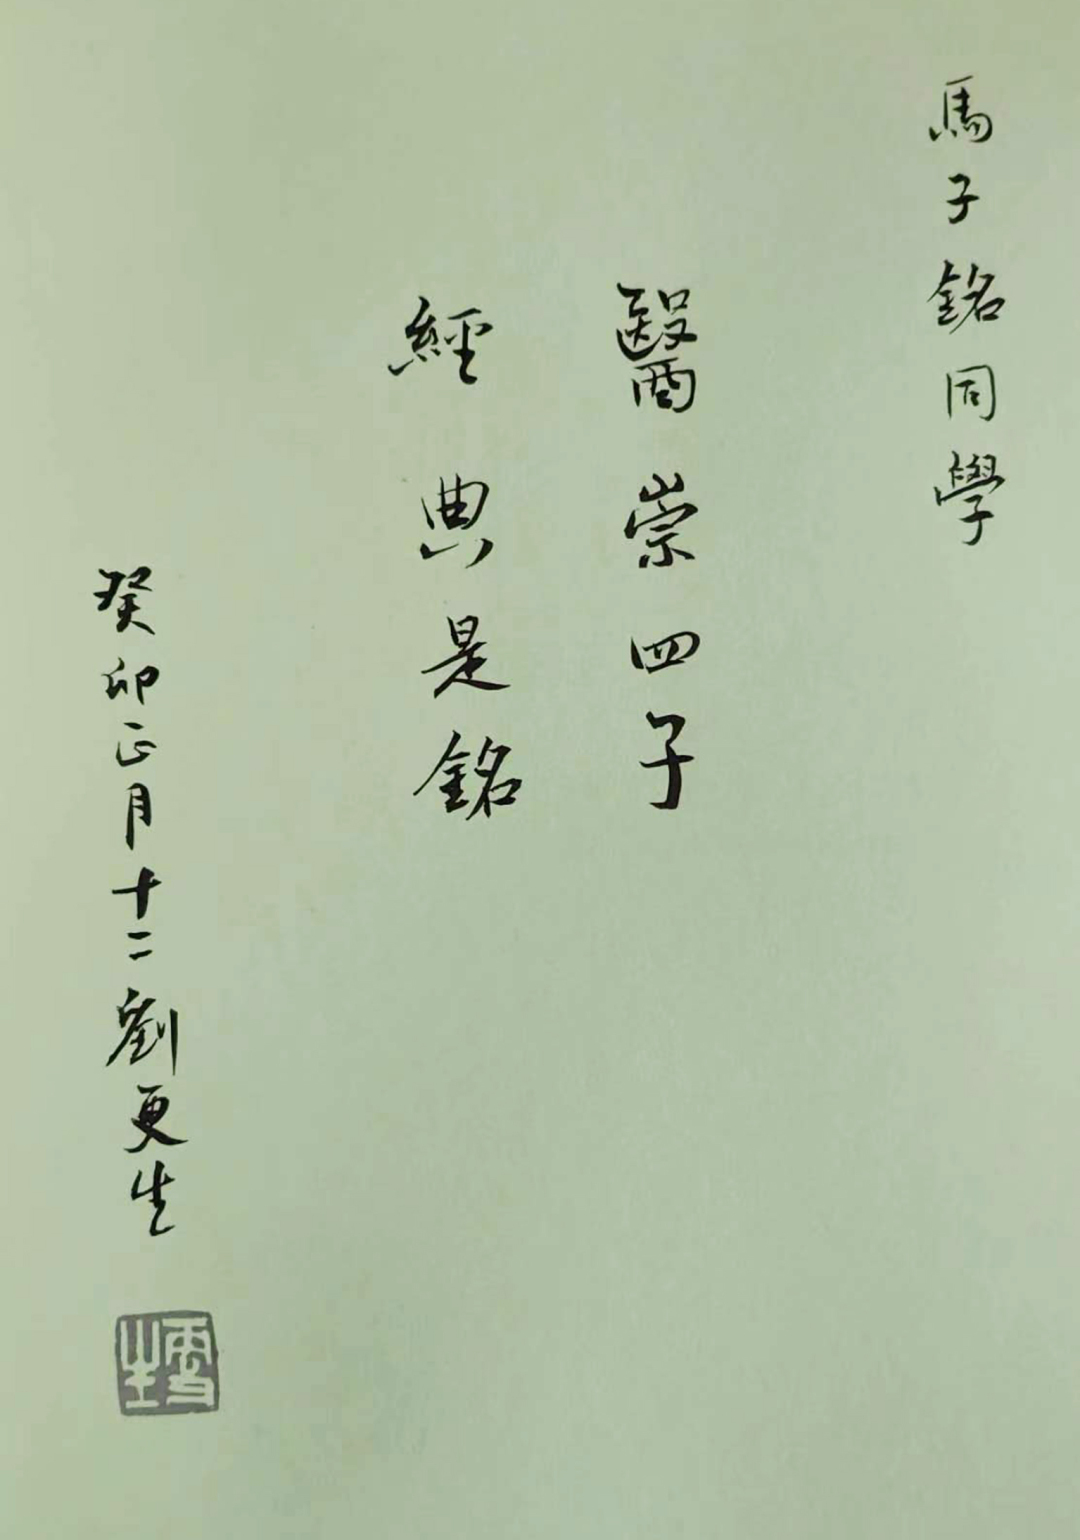 馬子銘同學
醫崇四子
經典是銘
癸卯正月十二劉更生
更生